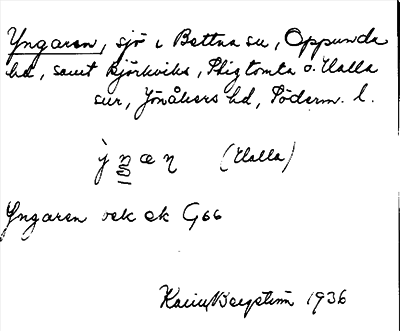 Yngaren, sjö i Bettna sn, Oppunda
hd, samt Björkviks, Stigtomta o. Halla
snr, Jönåkers hd, Söderm. l.
(Halla)
Yngaren vek ek G66
Karin Bergström 1936